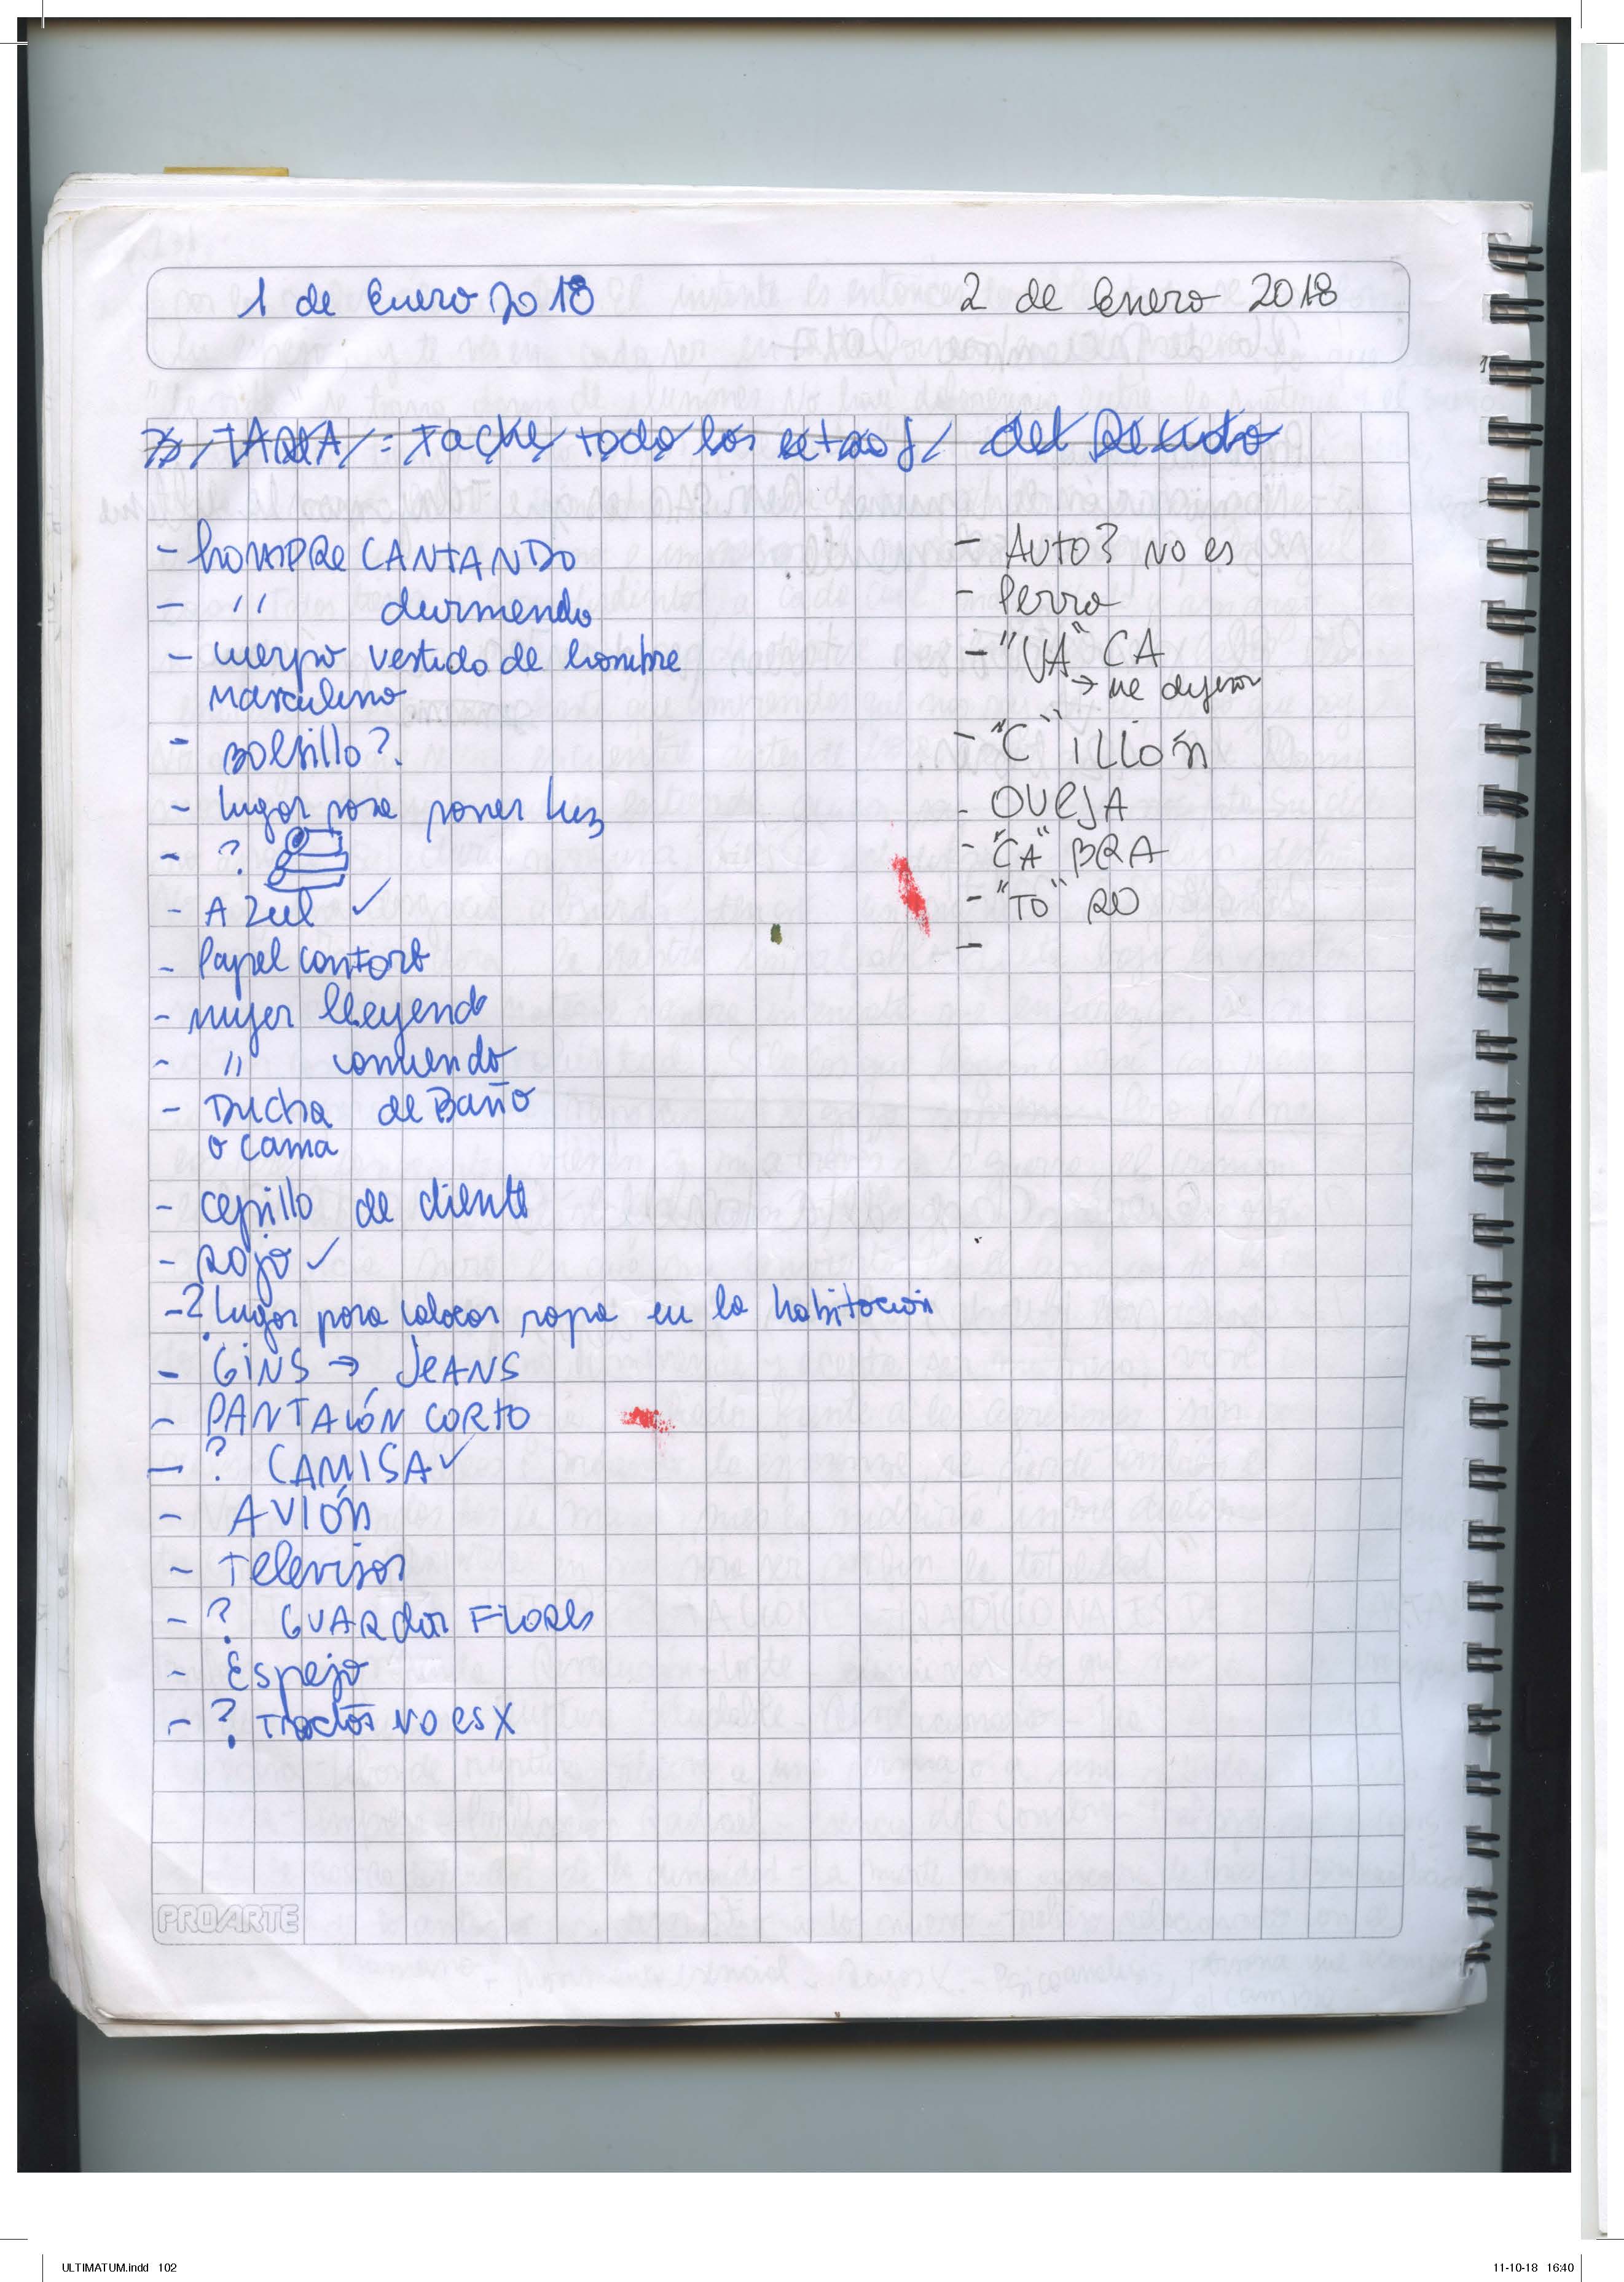 1 de Enero 2018
2 de Enero 2018
TAREA = Tache todo los
- HOMBRE CANTANDO
- '' durmendo
- cuerpo vestido de hombre
masculino
- Bolsillo?
- lugar para poner luz
- ?
- Azul ✓
- Papel confort
- mujer lleyendo
- '' comiendo
- Ducha de Baño
o cama
- cepillo de diente
- Rojo ✓
- ? Lugar para colocar ropa en la habitación
- GINS → JEANS
- PANTALÓN CORTO
- ? CAMISA ✓
- AVIÓN
- Televisor
- ? GUARdar FLORes
- Espejo
- ? Tractor NO es X
- AUTO? NO es
- Perro
- "VA" CA
→ me dijeron
- "C" ILLÓN
- OVEJA
- "CA" BRA
- "TO" RO
-
PROARTE
ULTIMATUM.indd 102
11-10-18 16:40